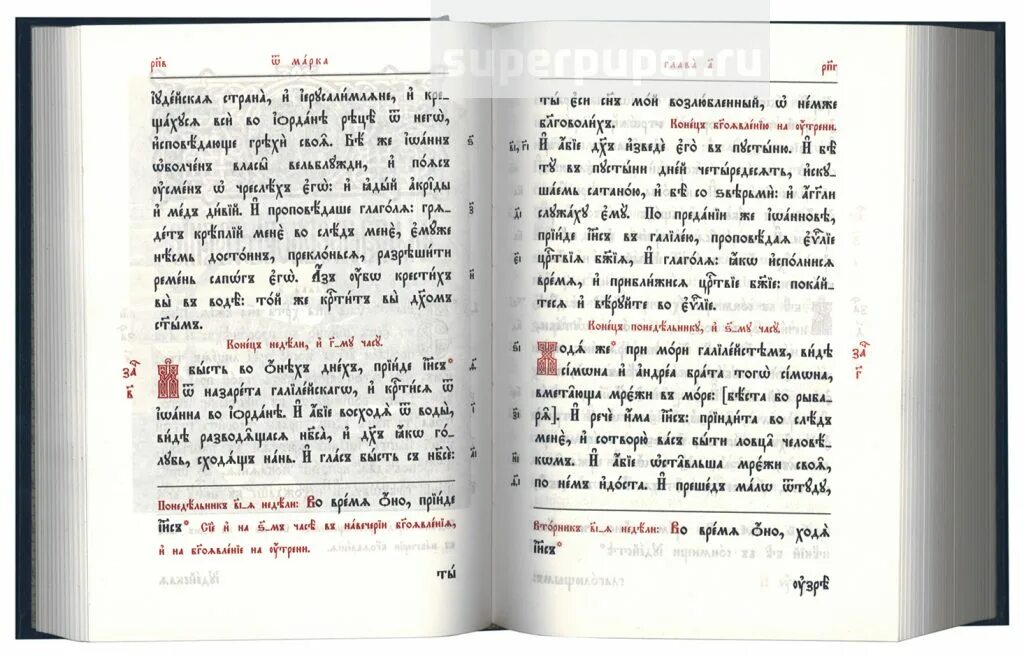 superpuper.ru
рп҃в
ѿ ма́рка
і҆ꙋде́йскаѧ страна̀, и҆ і҆ерⷭ҇али́млѧне, и҆ кре_
ща́хꙋсѧ всѝ во і҆ѻрда́нѣ рѣцѣ̀ ѿ негѡ̀,
и҆сповѣ́дающе грѣхѝ своѧ̀. Бѣ́ же і҆ѡа́ннъ
ѡ҆болче́нъ власы̑ вельблю́жди, и҆ по́ѧсъ
ᲂу҆сме́нъ ѡ҆ чре́слѣхъ є҆гѡ̀: и҆ ꙗ҆ды́й а҆крі́ды
и҆ ме́дъ ди́вїй. И҆ проповѣ́даше глаго́лѧ: грѧ_
де́тъ крѣ́плїй менє̀ во слѣ́дъ менє̀, є҆мꙋ́же
нѣ́смь досто́инъ, прекло́ньсѧ, разрѣши́ти
реме́нь сапѡ́гъ є҆гѡ̀. А҆́зъ ᲂу҆́бѡ крести́хъ
вы̀ въ водѣ̀: то́й же крⷭ҇ти́тъ вы̀ дх҃омъ
ст҃ы́мъ.
Коне́цъ недѣ́ли, и҆ г҃-мꙋ часꙋ̀.
И҆ бы́сть во ѻ҆́нѣхъ дне́хъ, прїи́де і҆и҃съ*
ѿ назаре́та галїле́йскагѡ, и҆ крⷭ҇ти́сѧ ѿ
і҆ѡа́нна во і҆ѻрда́нѣ. И҆ а҆́бїе восходѧ̀ ѿ воды̀,
ви́дѣ разводѧ́щасѧ нб҃са̀, и҆ дх҃ъ ꙗ҆́кѡ го́_
лꙋбь, сходѧ́щъ на́нь. И҆ гла́съ бы́сть съ нб҃сѐ:
ѕ҃
з҃
и҃
за҄ в҃
ѳ҃
і҃
а҃і
Понедѣ́льникъ в҃і-ѧ недѣ́ли: Во вре́мѧ ѻ҆́но, прїи́де
і҆и҃съ* Сїѐ и҆ на ѕ҃-мъ часѣ̀ въ наве́черїи бг҃оѧвле́нїѧ,
и҆ на бг҃оѧвле́нїе на ᲂу҆́трени.
ты̀
глава̀ а҃
рп҃г
ты̀ є҆сѝ сн҃ъ мо́й возлю́бленный, ѡ҆ не́мже
бл҃говоли́хъ. Коне́цъ бг҃оѧвле́нїю на ᲂу҆́трени.
И҆ а҆́бїе дх҃ъ и҆зведѐ є҆го̀ въ пꙋсты́ню. И҆ бѣ̀
тꙋ̀ въ пꙋсты́ни дні́й четы́редесѧть, и҆скꙋ_
ша́емь сатано́ю, и҆ бѣ̀ со ѕвѣрьмѝ: и҆ а҆́гг҃ли
слꙋжа́хꙋ є҆мꙋ̀. По преда́нїи же і҆ѡа́нновѣ,
прїи́де і҆и҃съ въ галїле́ю, проповѣ́даѧ є҆ѵⷢ҇лїе
црⷭ҇твїѧ бж҃їѧ, И҆ глаго́лѧ: ꙗ҆́кѡ и҆спо́лнисѧ
вре́мѧ, и҆ прибли́жисѧ црⷭ҇твїе бж҃їе: пока́й_
тесѧ и҆ вѣ́рꙋйте во є҆ѵⷢ҇лїе.
Коне́цъ понедѣ́льникꙋ, и҆ ѕ҃-мꙋ часꙋ̀.
Ходѧ́ же* при мо́ри галїле́йстѣмъ, ви́дѣ
сі́мѡна и҆ а҆ндре́а бра́та тогѡ̀ сі́мѡна,
вмета́юща мрє́жи въ мо́ре: [бѣ́ста бо рыба_
рѧ̑]. И҆ речѐ и҆́ма і҆и҃съ: прїиди́та во слѣ́дъ
менє̀, и҆ сотворю̀ ва́съ бы́ти ловца̑ человѣ́_
кѡмъ. И҆ а҆́бїе ѡ҆ста̑вльша мрє́жи своѧ̑,
по не́мъ и҆до́ста. И҆ преше́дъ ма́лѡ ѿтꙋ́дꙋ,
в҃і, г҃і
д҃і
е҃і
ѕ҃і
за҄ г҃
з҃і
и҃і
ѳ҃і
Вто́рникъ в҃і-ѧ недѣ́ли: Во вре́мѧ ѻ҆́но, ходѧ̀
і҆и҃съ*
ᲂу҆зрѣ̀